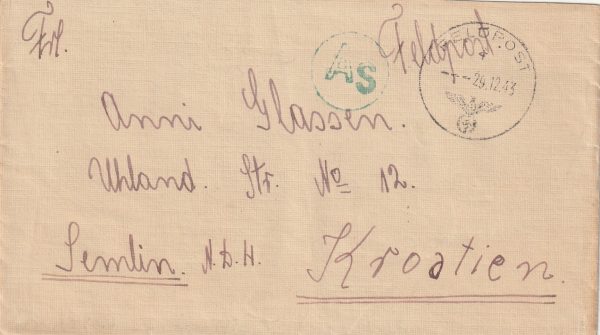 Frl. Feldpost.
FELDPOST
29.12.43
As
Anni Glassen.
Uhland. Str. No 12.
Semlin. N.D.H. Kroatien.